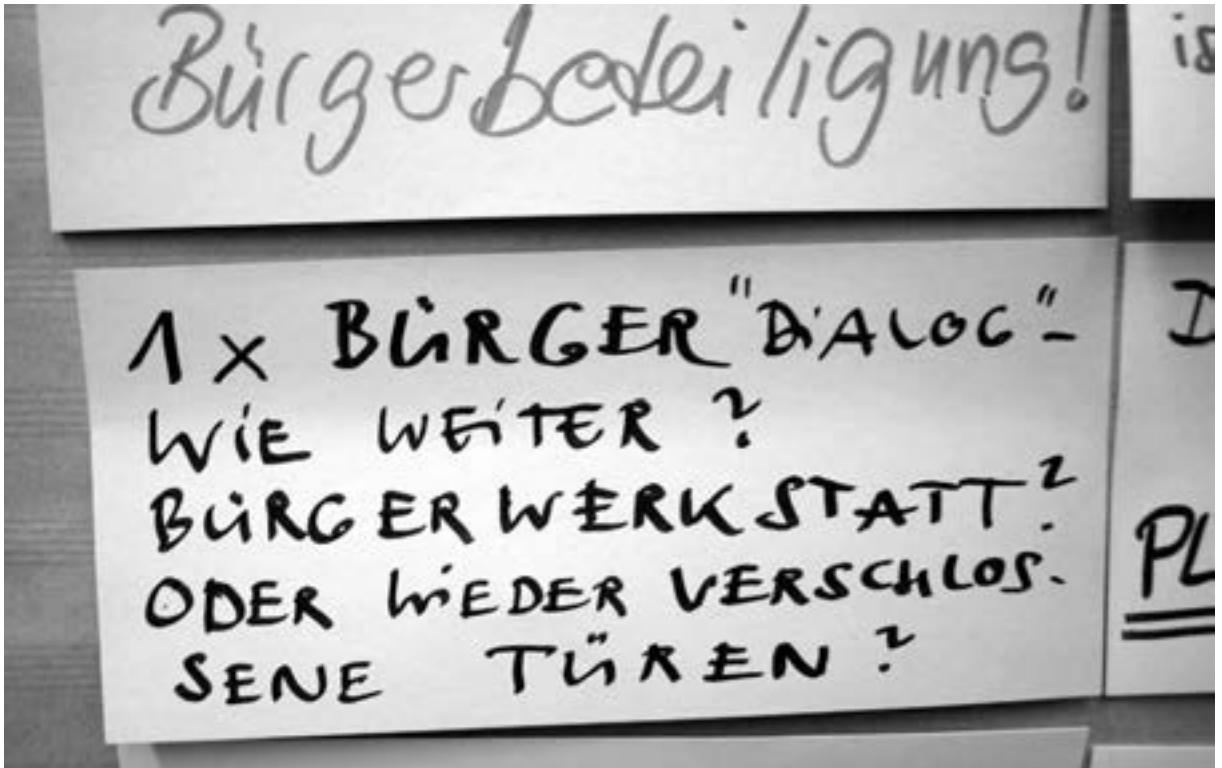 Bürgerbeteiligung!
is
1 x BÜRGER "DiALOG"-
WiE WEiTER?
BÜRGERWERKSTATT?
ODER WiEDER VERSCHLOS-
SENE TÜREN?
D
PL